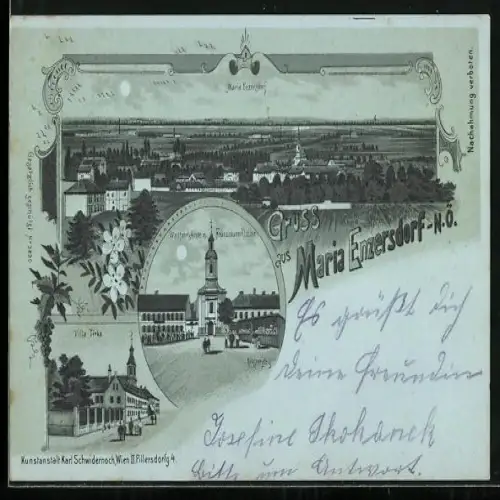 Maria Enzersdorf
Nachahmung verboten.
Gruss
aus
Maria Enzersdorf-N.Ö.
Villa Tirka
Kunstanstalt Karl Schwidernoch, Wien II. Pillersdorfg 4.
Es grüßt dich
deine Freundin
Josefine Skokanek
Bitte um Antwort.